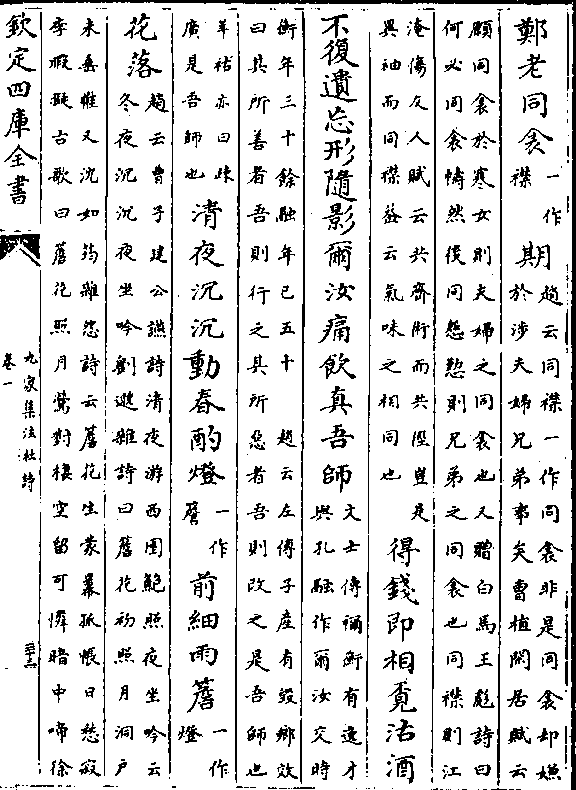 鄭老同衾一作
襟期趙云同襟一作同衾非是同衾却嫌
於涉夫婦兄弟事矣曹植閑居賦云
願同衾於寒女則夫婦之同衾也又贈白馬王彪詩曰
何必同衾幬然後同慇懃則兄弟之同衾也同襟則江
淹傷友人賦云共齊術而共陞豈是
異袖而同襟蓋云氣味之相同也
得錢即相覓沽酒
不復遺忘形隨影爾汝痛飲真吾師文士傳禰衡有逸才
與孔融作爾汝交時
衡年三十餘融年已五十 趙云左傳子產有毀鄉效
曰其所善者吾則行之其所惡者吾則改之是吾師也
羊祜亦曰疎
廣是吾師也
清夜沉沉動春酌燈一作
簷前細雨簷一作
燈
花落趙云曹子建公讌詩清夜游西園鮑照夜坐吟云
冬夜沉沉夜坐吟劉邈雜詩曰簷花初照月洞戶
未垂帷又沈如筠雜怨詩云簷花生蒙幕孤帳日愁寂
李暇擬古歌曰簷花照月鶯對棲空留可憐暗中啼徐
欽定四庫全書
九家集注杜詩
卷一
三十三